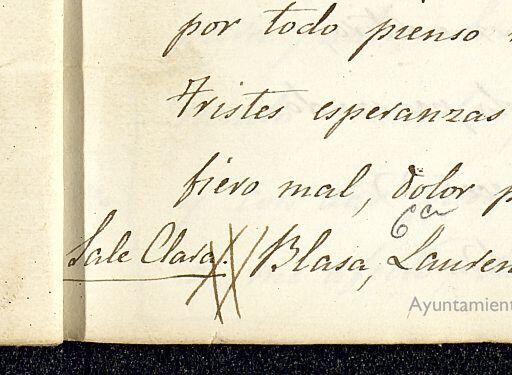 por todo pienso
Tristes esperanzas
fiero mal, dolor p
6a
Sale Clara. Blasa, Lauren
Ayuntamient